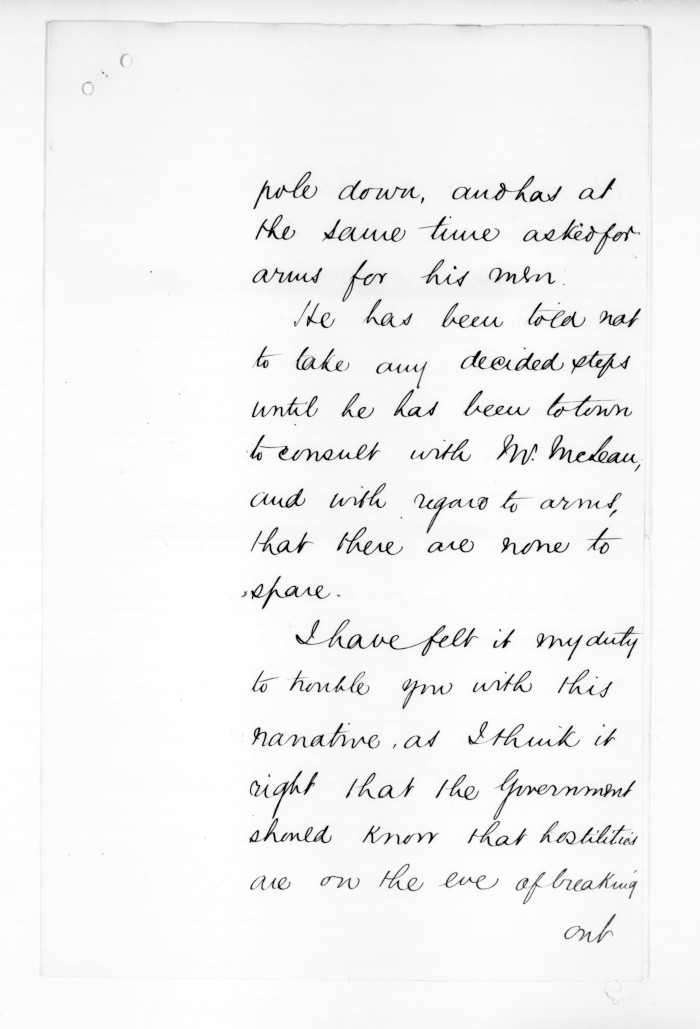 pole down, and has at
the same time asked for
arms for his men.
He has been told not
to take any decided steps
until he has been to town
to consult with Mr. McLean,
and with regard to arms,
that there are none to
spare.
I have felt it my duty
to trouble you with this
narrative, as I think it
right that the Government
should know that hostilities
are on the eve of breaking
out